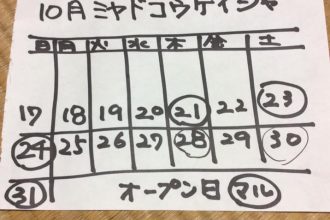 10月ミヤドコウケイシャ
日 月 火 水 木 金 土
17 18 19 20 21 22 23
24 25 26 27 28 29 30
31 オープン日 マル